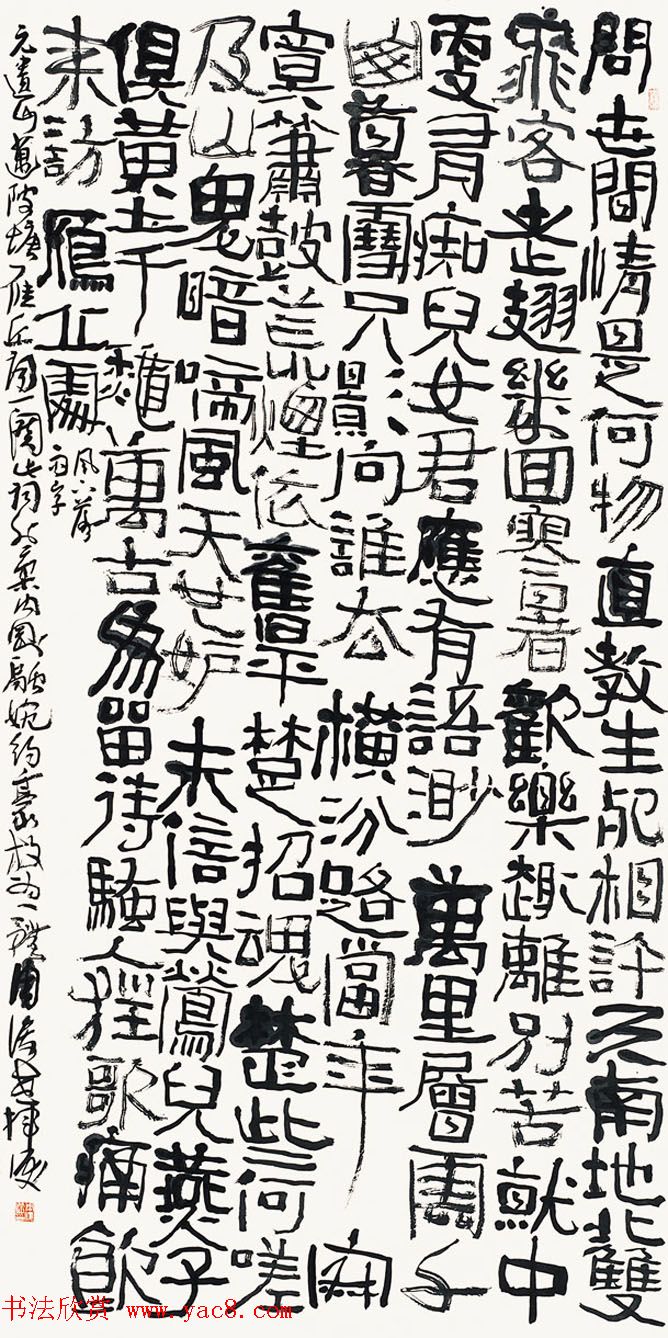 問世間情是何物直教生死相許天南地北雙
飛客老翅幾回寒暑歡樂趣離別苦就中
更有痴兒女君應有語渺萬里層雲千
山暮雪只影向誰去橫汾路當年寂
寞簫鼓荒煙依舊平楚招魂楚些何嗟
及山鬼暗啼風天也妒未信與鶯兒燕子
俱黃土千秋萬古為留待騷人狂歌痛飲
來訪雁丘處
風下落
雨字
元遺山邁陂塘雁丘詞一闋此詞婉約豪放為一體
书法欣赏 www.yac8.com